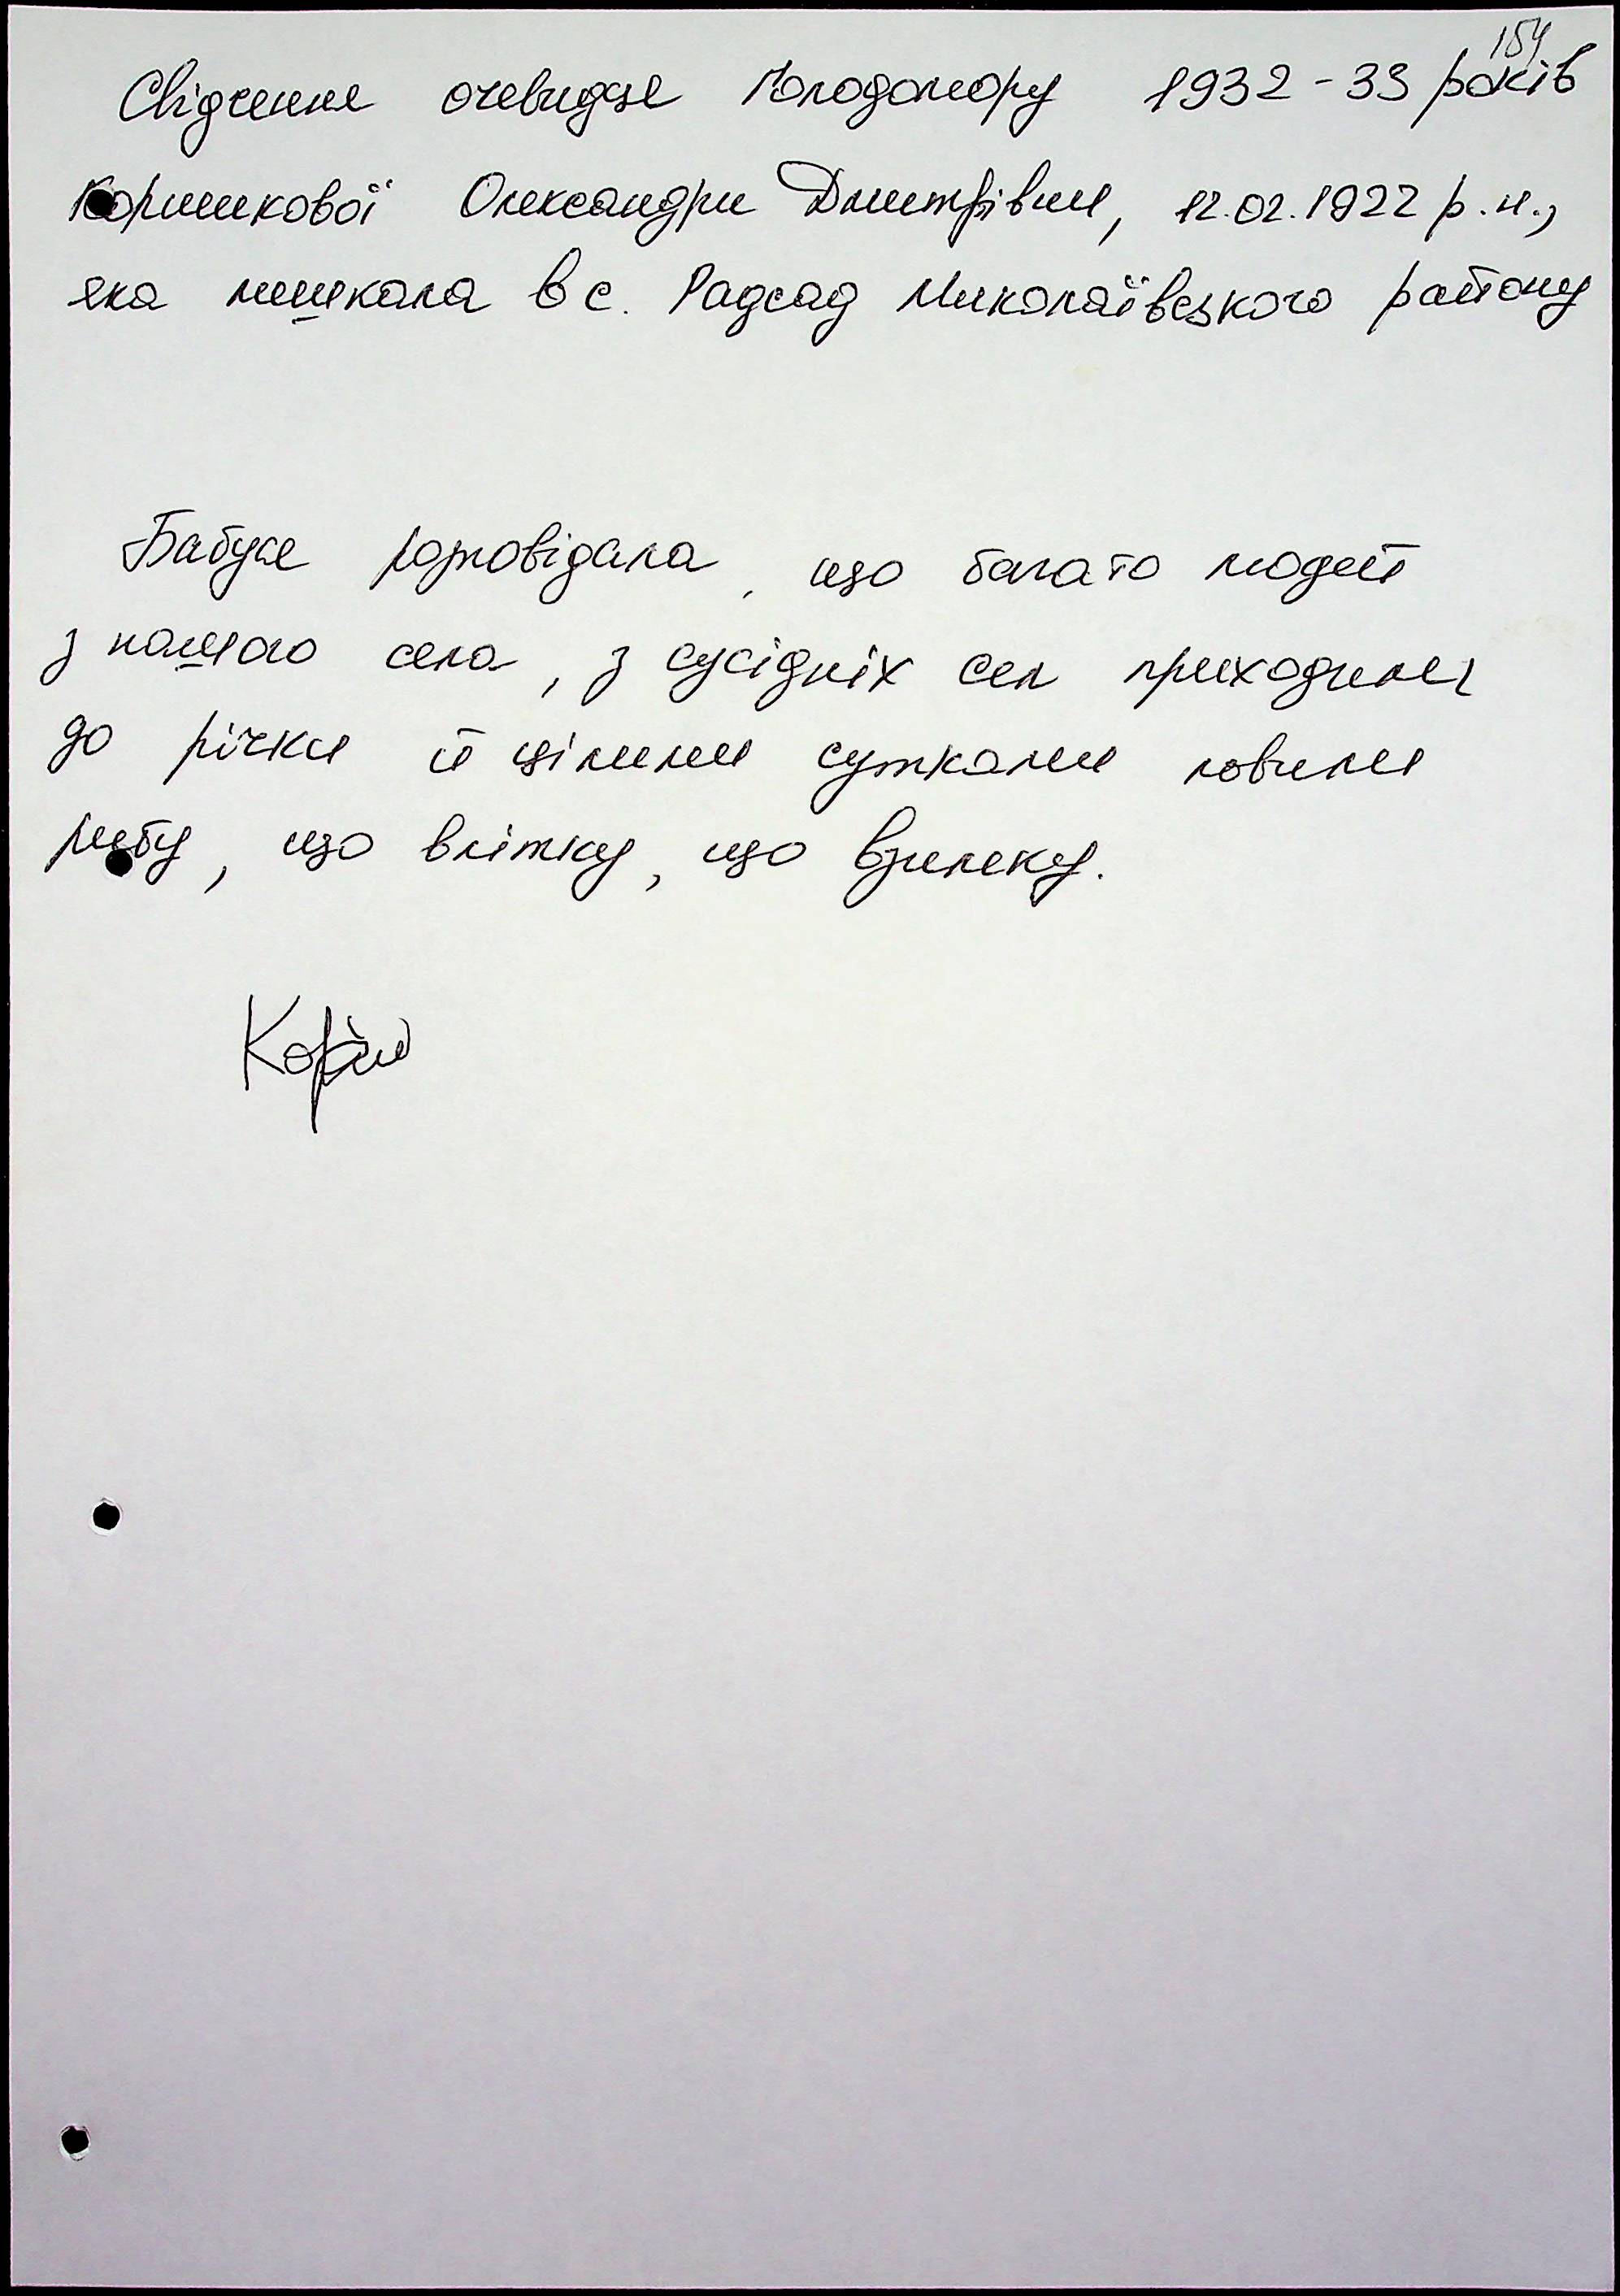 154
Свідчення очевидця Голодомору 1932-33 років
Олександри Дмитрівни, 12.02.1922 р.н.,
яка мешкала в с. Радсад Миколаївського району
Бабуся розповідала, що багато людей
з нашого села, з сусідніх сел приходили
до річки й цілими сутками ловили
рибу, що влітку, що взимку.